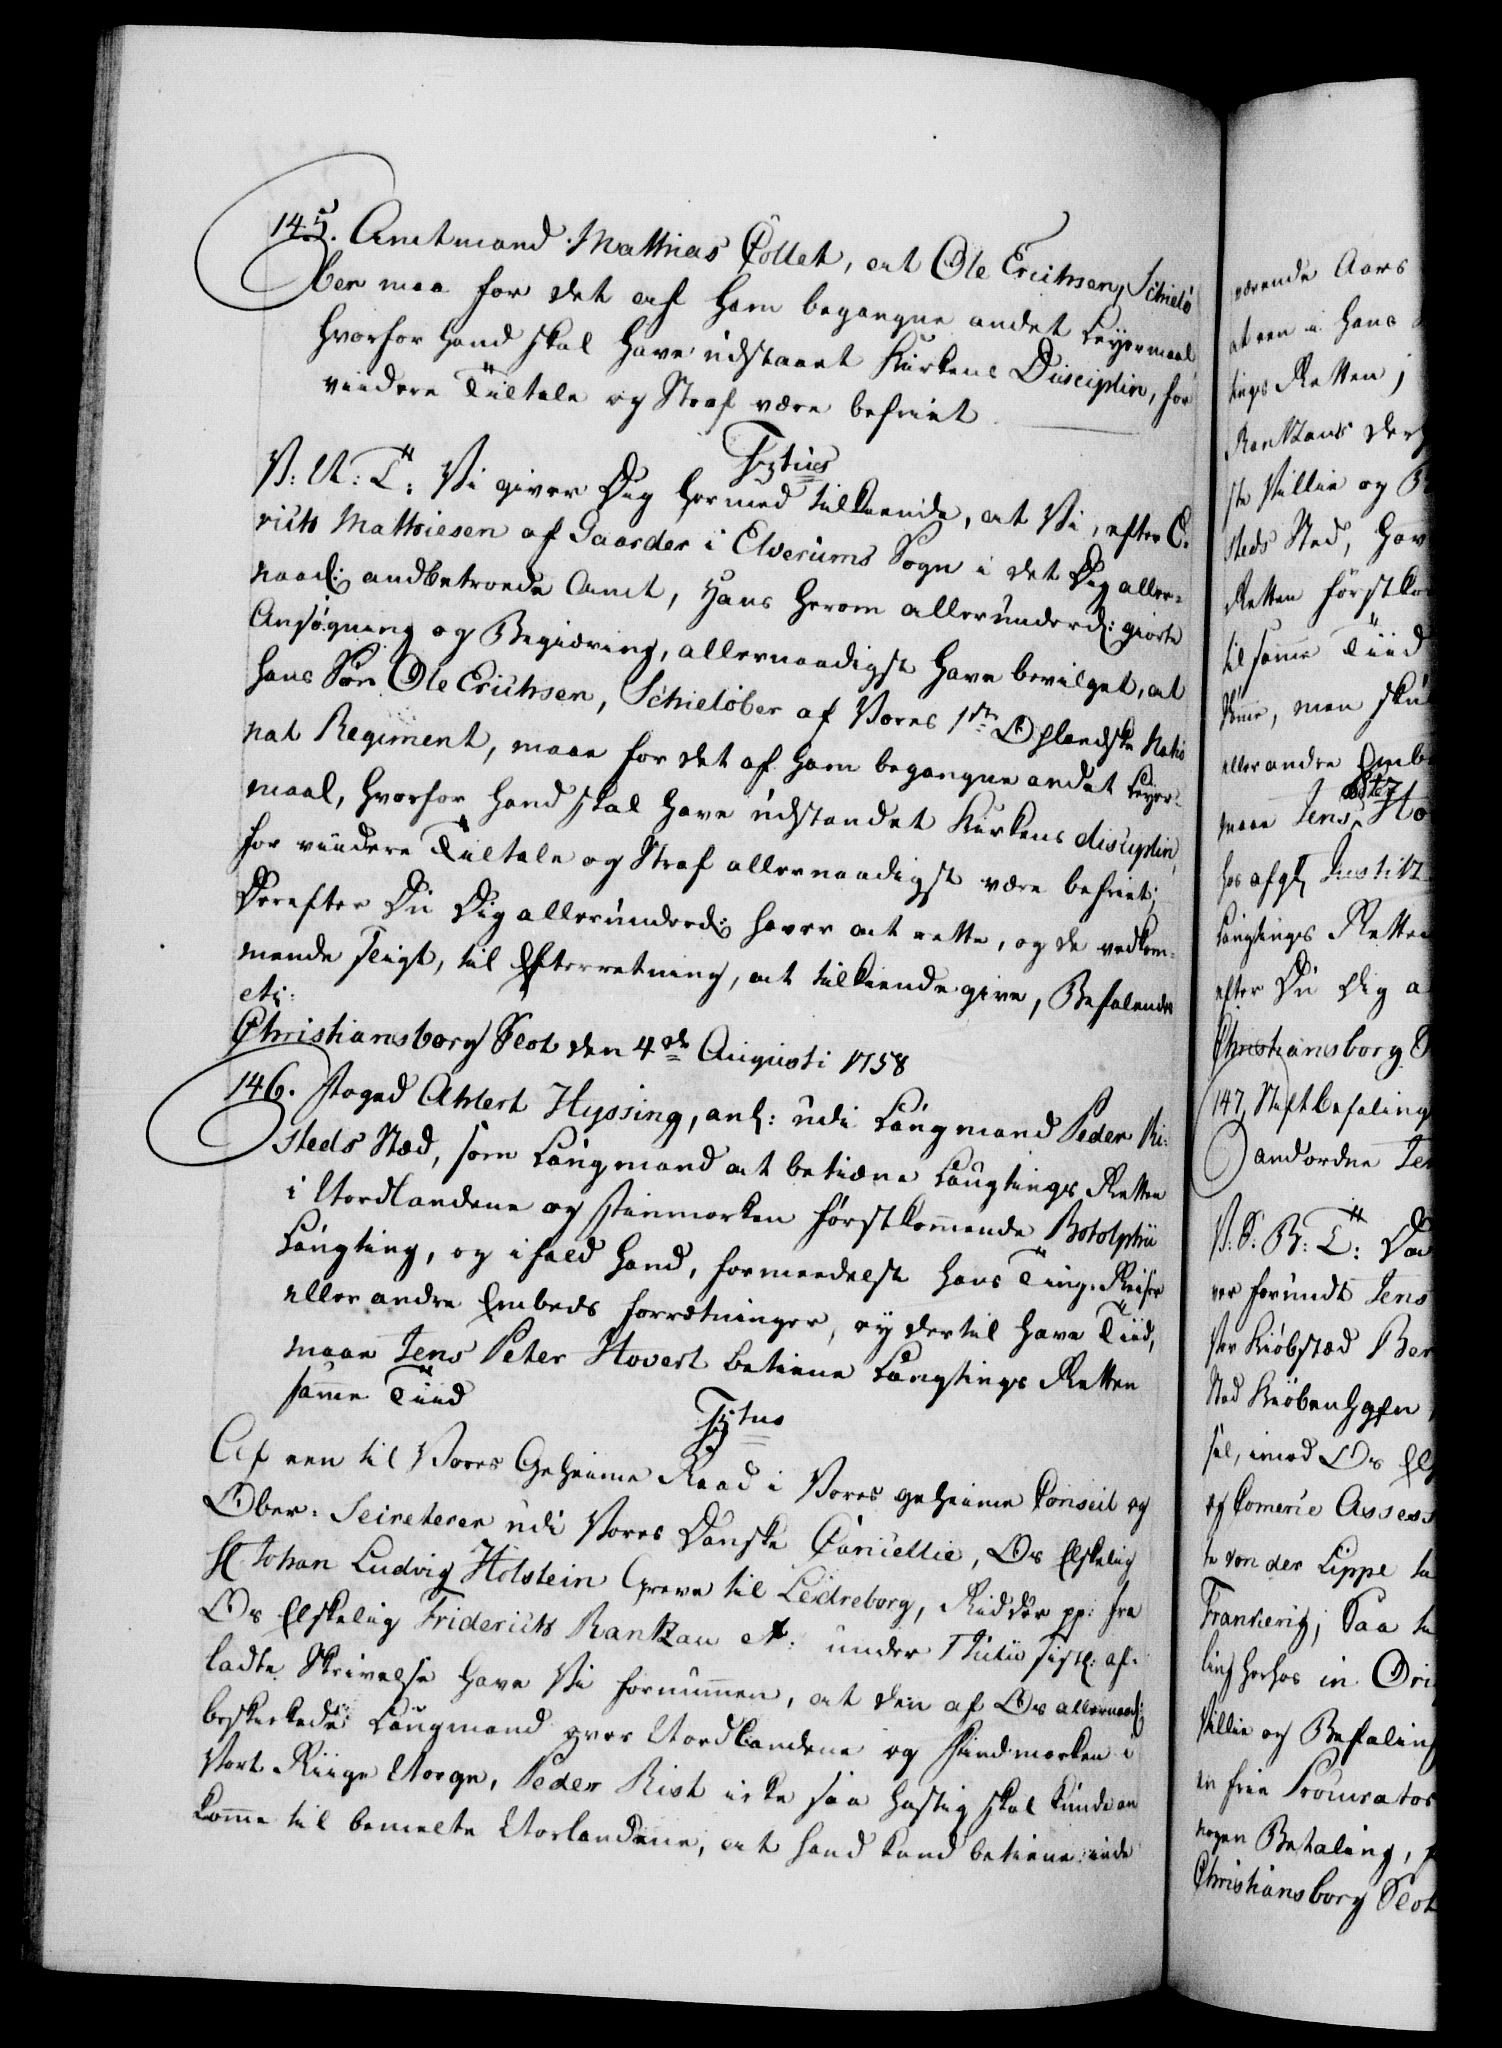 145. Amtmand Mathias Collet, at Ole Erichsen, Schielö
ber maa for det af ham begangne andet Leyermaal
hvorfor hand skal have udstaaet Kirkens Disciplin, for
viidere Tiltale og Straf være befriet
Tytus
V: A: T: Vi giver Dig hermed tilkiende, at Vi, efter E.
rich Mathiesen af Gaarder i Elverums Sogn i det Dig aller-
naad: andbetroede Amt, Hans herom allerunderd: giorte
Ansøgning og Begiæring, allernaadigst have bevilget, at
hans Søn Ole Erichsen, Schielöber af Vores 1ste Oplandske Natio
nal Regiment, maae for det af ham begangne andet Leyer-
maal, hvorfor hand skal have udstandet Kirkens disciplin,
for viidere Tiltale og Straf allernaadigst være befriet;
Derefter Du Dig allerunderd: haver at rette, og de vedkom-
mende sligt, til Efterretning, at tilkiendegive, Befalendes
etc:
Christiansborg Slot den 4de Augusti 1758
146. Foged Ahlert Hyssing, anl: udi Laugmand Peder Ri-
steds Stæd, som Laugmand at betiene Laugtings Retten
i Nordlandene og Finmarken førstkommende Botolphii
Laugting, og ifald hand, formedelst hans Ting-Reiser
eller andre Embeds forretninger, ey dertil have Tiid,
maae Jens Peter Hovert betiene Laugtings Retten
samme Tiid
Tytus
Af een til Vores Geheime Raad i Vores geheime Conseil og
Ober-Secreterer udi Vores Danske Cancellie, Os Elskelig
H Johan Ludvig Holstein Greve til Ledreborg, Ridder pp: fra
Os Elskelig Friderich Rantzau etc: under 7 Julii sistl: af-
ladte Skrivelse have Vi fornummen, at den af Os allernaad:
beskikkede Laugmand over Nordlandene og Findmarken i
Vort Riige Norge, Peder Rist icke saa hastig skal kunde an
komme til bemelte Norlandene, at hand kand betiene inde
værende Aars
at een i hans
tings Retten;
Rantzaus der
ste Villie og B
steds Sted, hav
Retten förstko
til samme Tiid
komme, men sku
eller andre Embe
maae Jens Peter Ho
hos afgl Justitz
Laugtings Retten
efter Du Dig a
Christiansborg S
147. Stiftbefaling
andordne Jen
V: S: B: T: Da
ver forundt Jens
ster Kiøbstæd Ber
Stad Kiöbenhafn
sel, imod Os El
og Comerie Assess
te von der Lippe ta
Frankerig; Saa ha
ling herhos in Ori
Villie og Befaling
en frie Procurator
nogen Betaling,
Christiansborg Slot